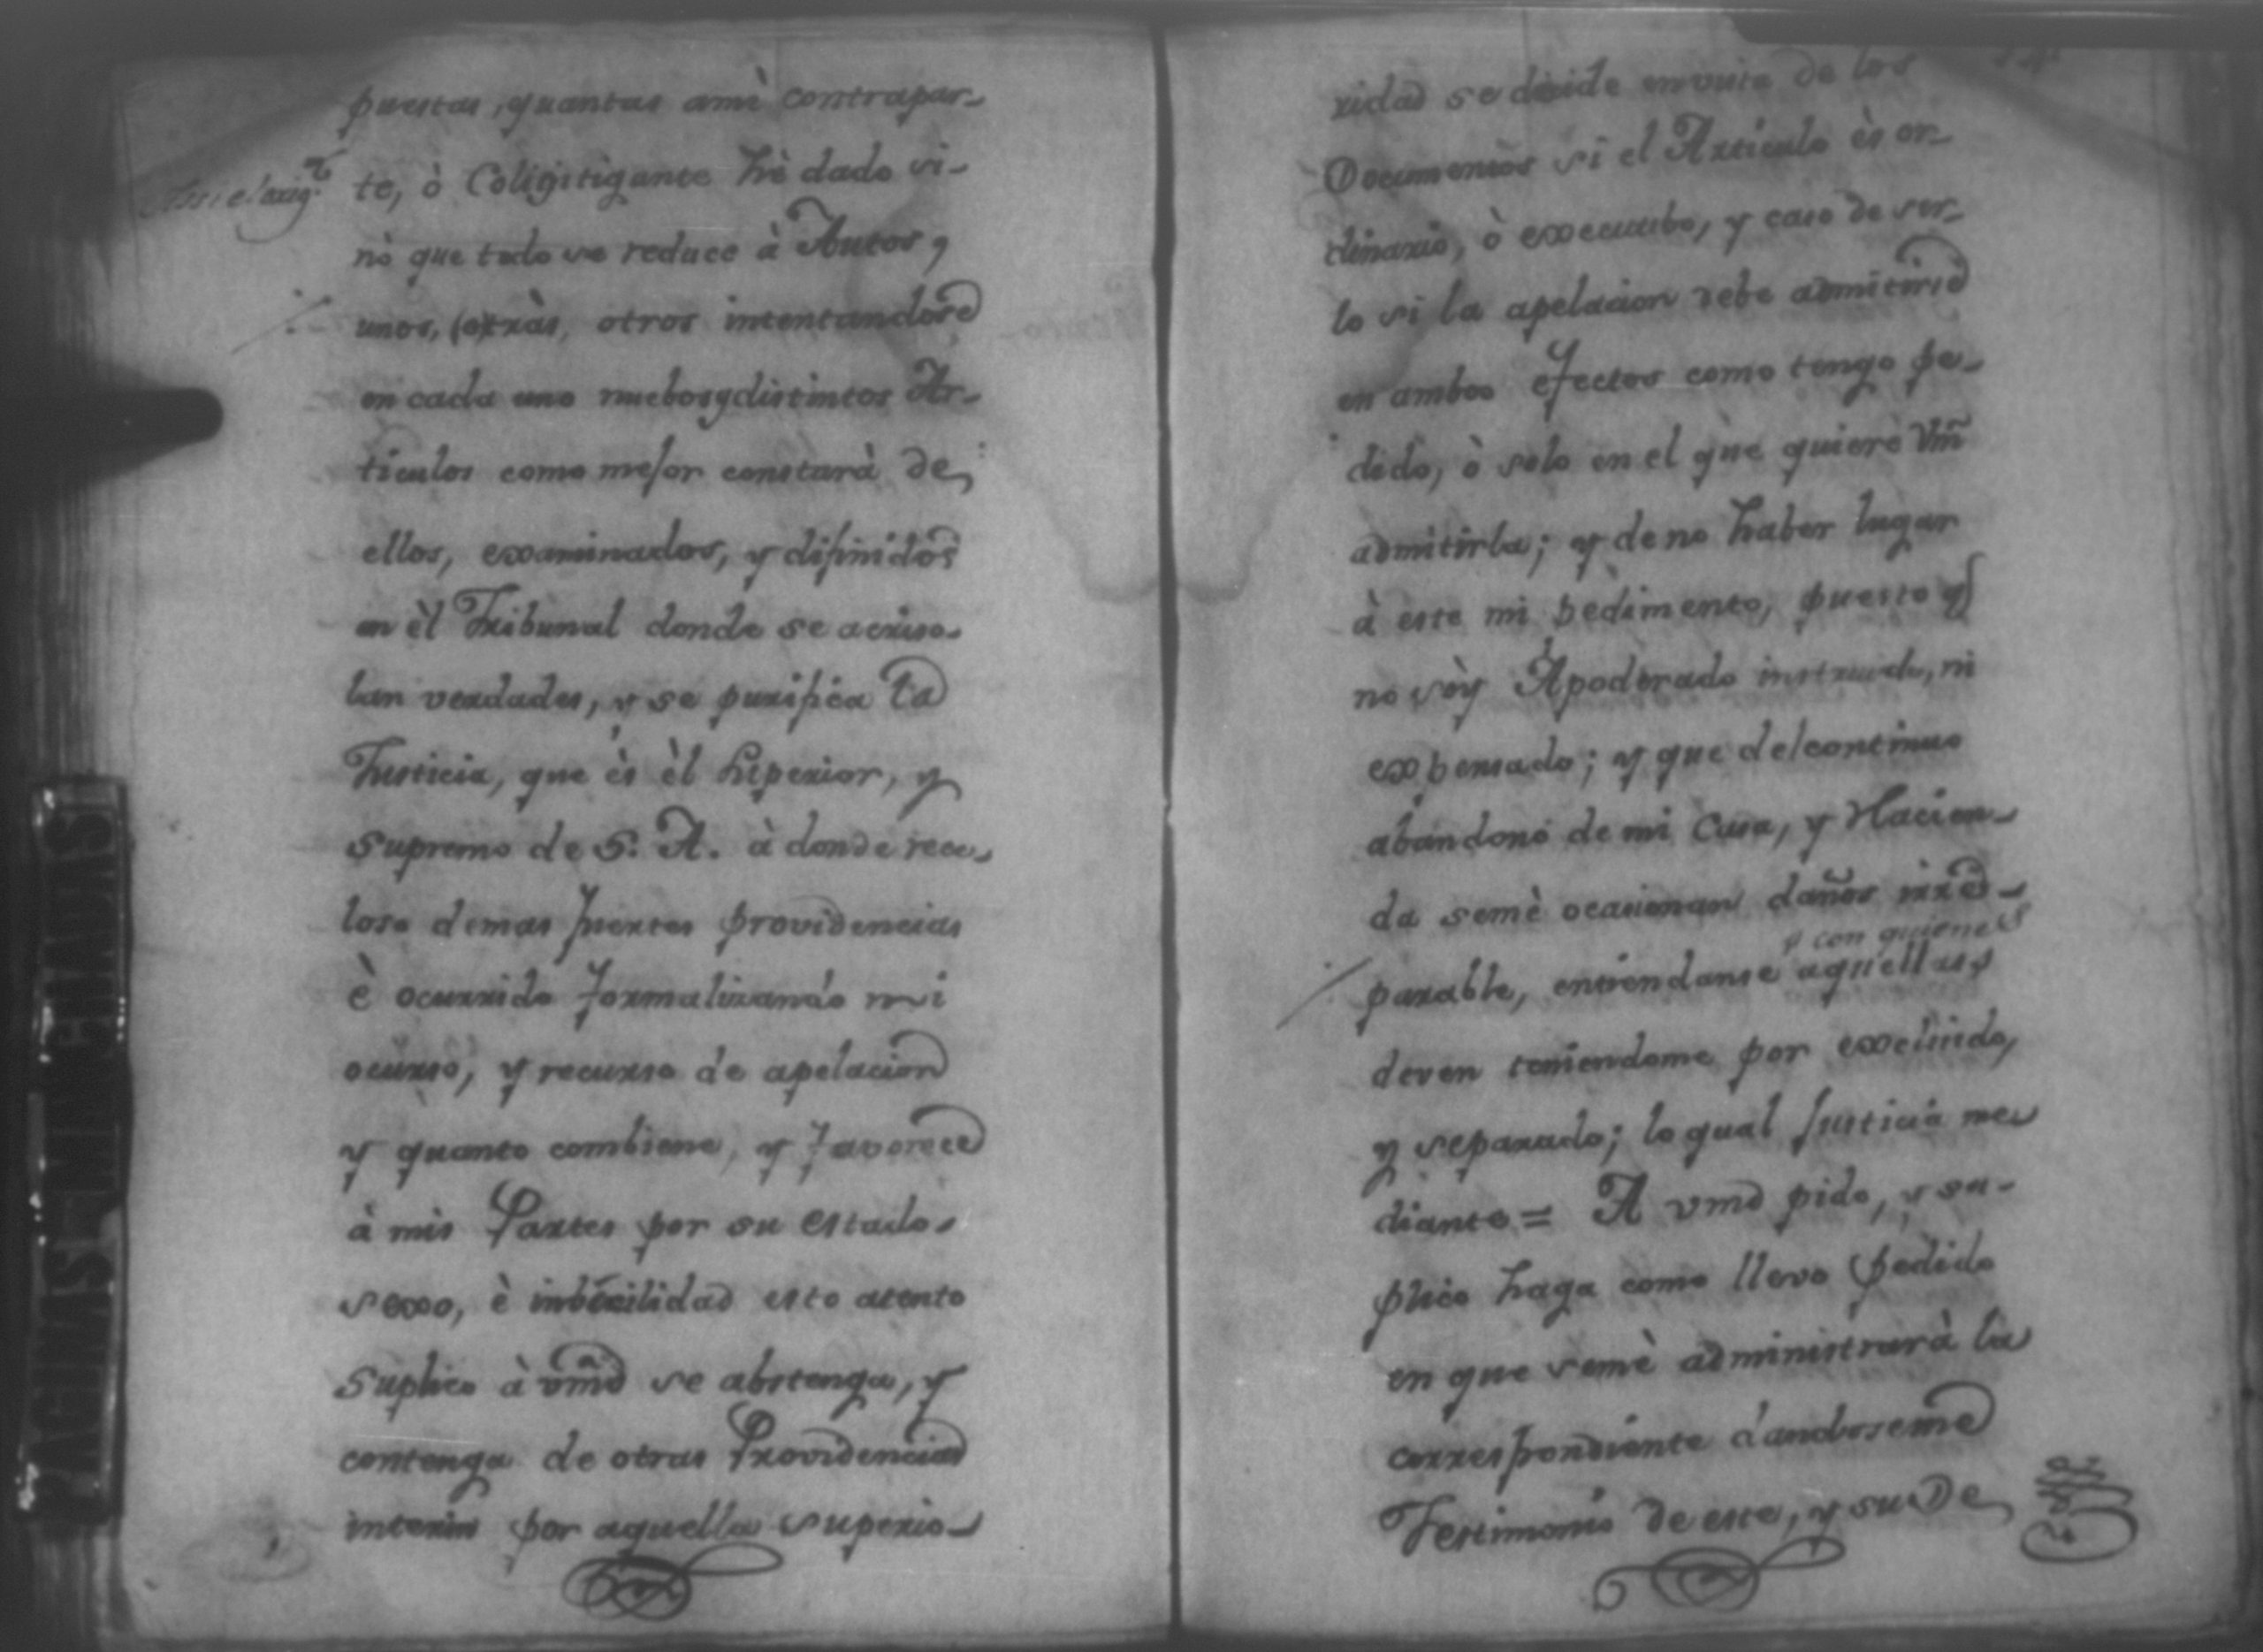 puestas, quantas amè contrapar-
te, ò Coligitigante hè dado si-
nò que todo se reduce à Autos,
unos, (o)tràs, otros intentandose
en cada uno nuebos y distintos Ar-
ticulos como mejor constarà de
ellos, examinados, y difinidos
en èl Tribunal donde se acriso-
lan verdades, y se purifica la
Justicia, que ès èl Superior, y
Supremo de S. A. à donde rece-
loso demas fuertes providencias
è ocurrido formalizando mi
ocurso, y recurso de apelacion
y quanto combiene, y favorece
à mis Partes por su estado,
sexo, è inbecilidad esto atento
Suplico à vmd se abstenga, y
contenga de otras Providencias
interin por aquella Superio-
ridad se decide en vista de los
Documentos si el Articulo ès or-
dinario, ò executibo, y caso de ser-
lo si la apelacion debe admitirse
en ambos efectos como tengo pe-
dido, ò solo en el que quiere Vm̃
admitirla; y de no haber lugar
à este mi pedimento, puesto q
no sòy Apoderado instruido, ni
expensado; y que del continuo
abandono de mi Casa, y Hacien-
da semè ocasionan daños irre-
y con quienes
parable, entiendanse aquellas
deven teniendome por excluido,
y separado; lo qual Justicia me
diante = A vmd pido, y su-
plico haga como llevo pedido
en que semè administrarà la
correspondiente dandoseme
Testimonio de este, y su De